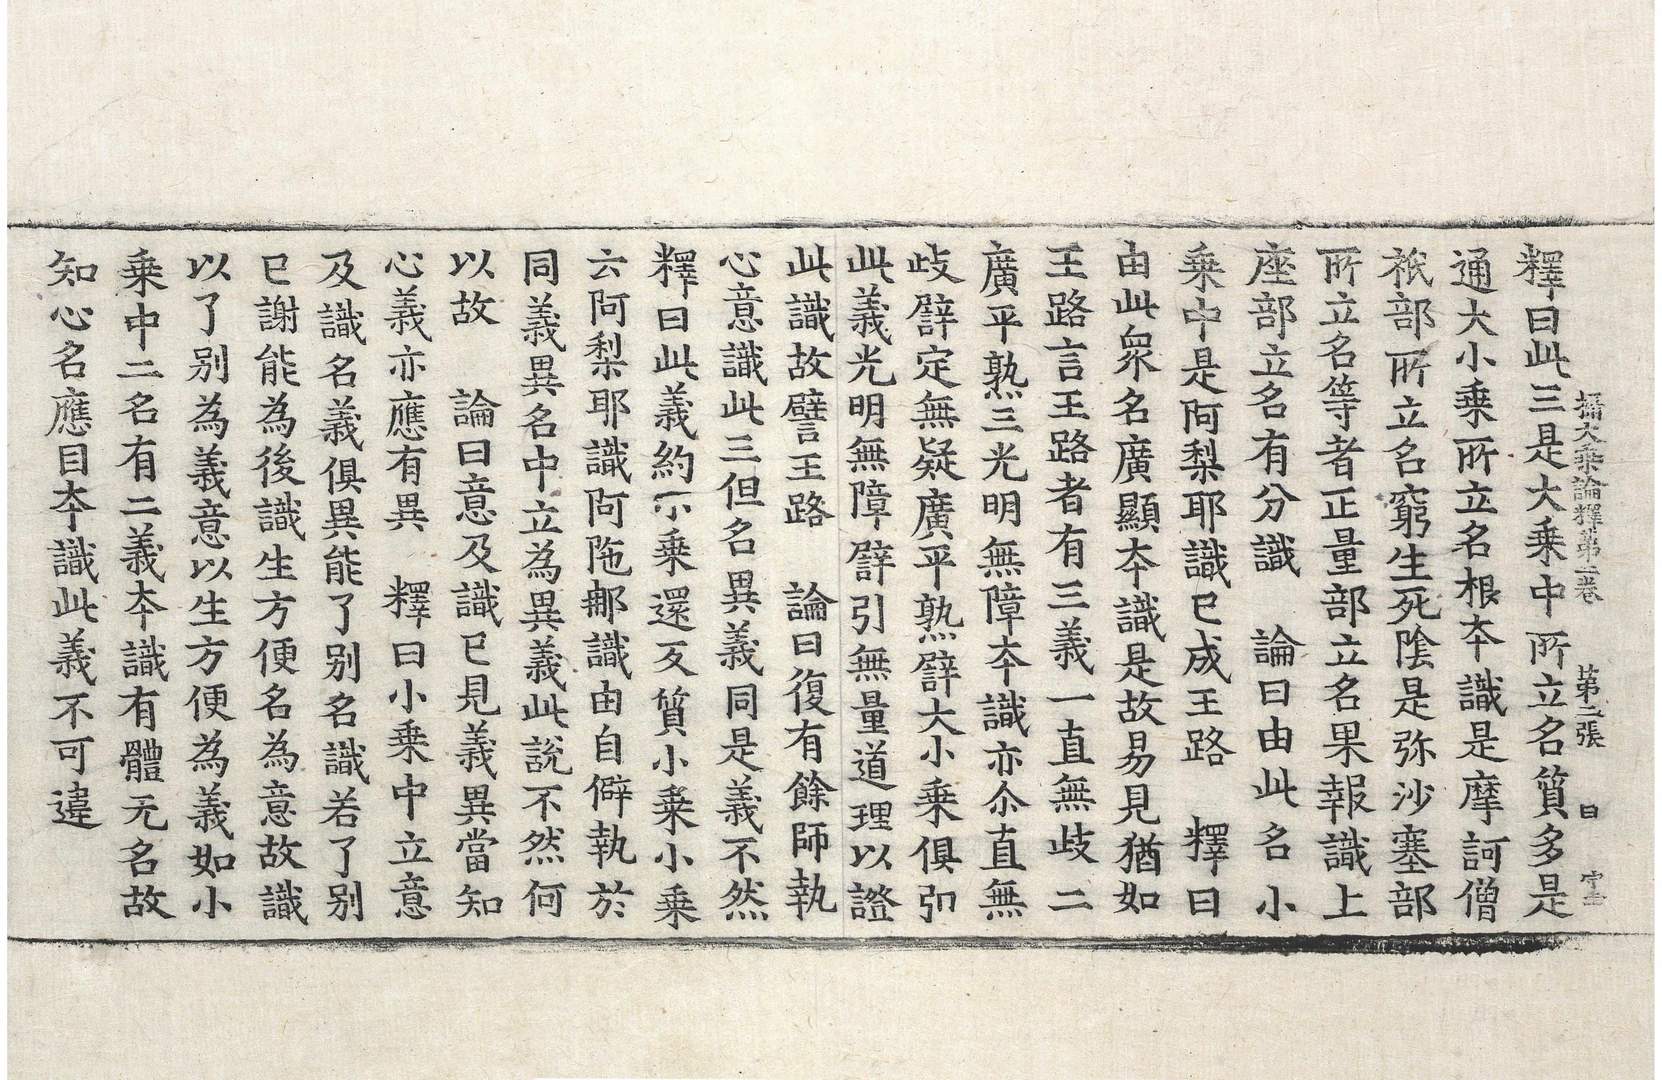 攝大乘論釋第二卷　第二張　曰
釋曰此三是大乘中所立名質多是
通大小乘所立名根本識是摩訶僧
祇部所立名窮生死陰是弥沙塞部
所立名等者正量部立名果報識上
座部立名有分識　論曰由此名小
乘中是阿梨耶識已成王路　釋曰
由此衆名廣顯本識是故易見猶如
王路言王路者有三義一直無歧二
廣平熟三光明無障本識亦尒直無
歧譬定無疑廣平熟譬大小乘俱引
此義光明無障譬引無量道理以證
此識故譬王路　論曰復有餘師執
心意識此三但名異義同是義不然
釋曰此義約小乘還反質小乘小乘
云阿梨耶識阿陁那識由自僻執於
同義異名中立為異義此說不然何
以故　論曰意及識已見義異當知
心義亦應有異　釋曰小乘中立意
及識名義俱異能了别名識若了别
已謝能為後識生方便名為意故識
以了别為義意以生方便為義如小
乘中二名有二義本識有體无名故
知心名應目本識此義不可違